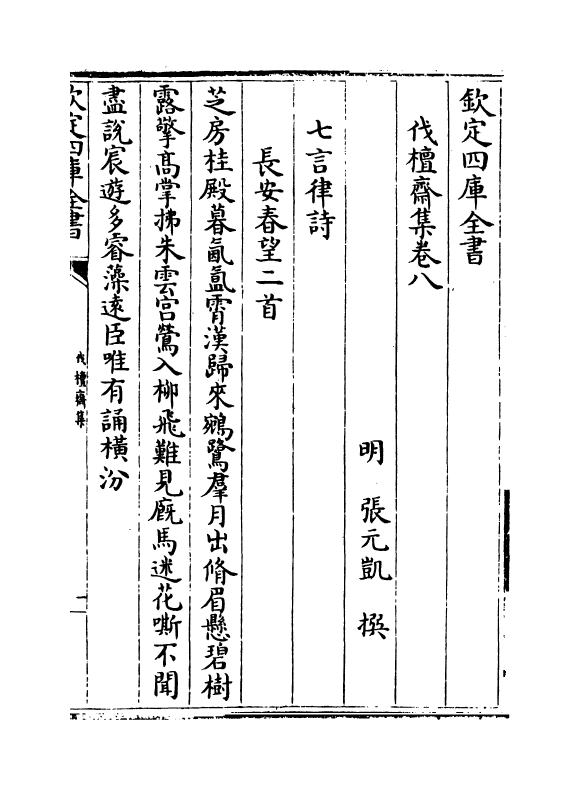 欽定四庫全書
伐檀齋集卷八
明 張元凱 撰
七言律詩
長安春望二首
芝房桂殿暮氤氳霄漢歸來鵷鷺羣月出脩眉懸碧樹
露擎高掌拂朱雲宫鶯入柳飛難見廐馬迷花嘶不聞
盡說宸遊多睿藻逺臣唯有誦橫汾
欽定四庫全書
伐檀齋集
一